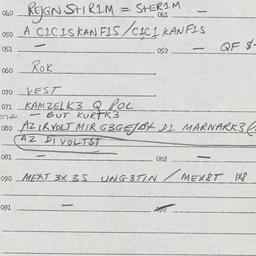 040 REJGNSHIR1M = STER1M 041 —
050 A C1C1SKANF1S / C1C1KANF1S
051 — 052 — QF $-
060 ROK
070 VEST
071 KAMZELK3 Q POL
072 — BUT KURTK3
080 AZIRVOLT MIR G3GE D1 MARNARK3
AZ D1 VOLTST
081 — 082 —
090 MEXT 3X 3S UNG3T1N / MEX8T 1X8
091 —